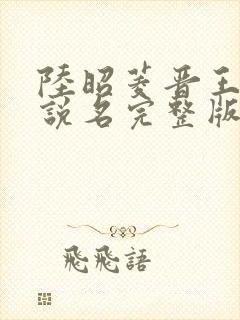 陸昭菱晋王
說名完整版
飛飛語